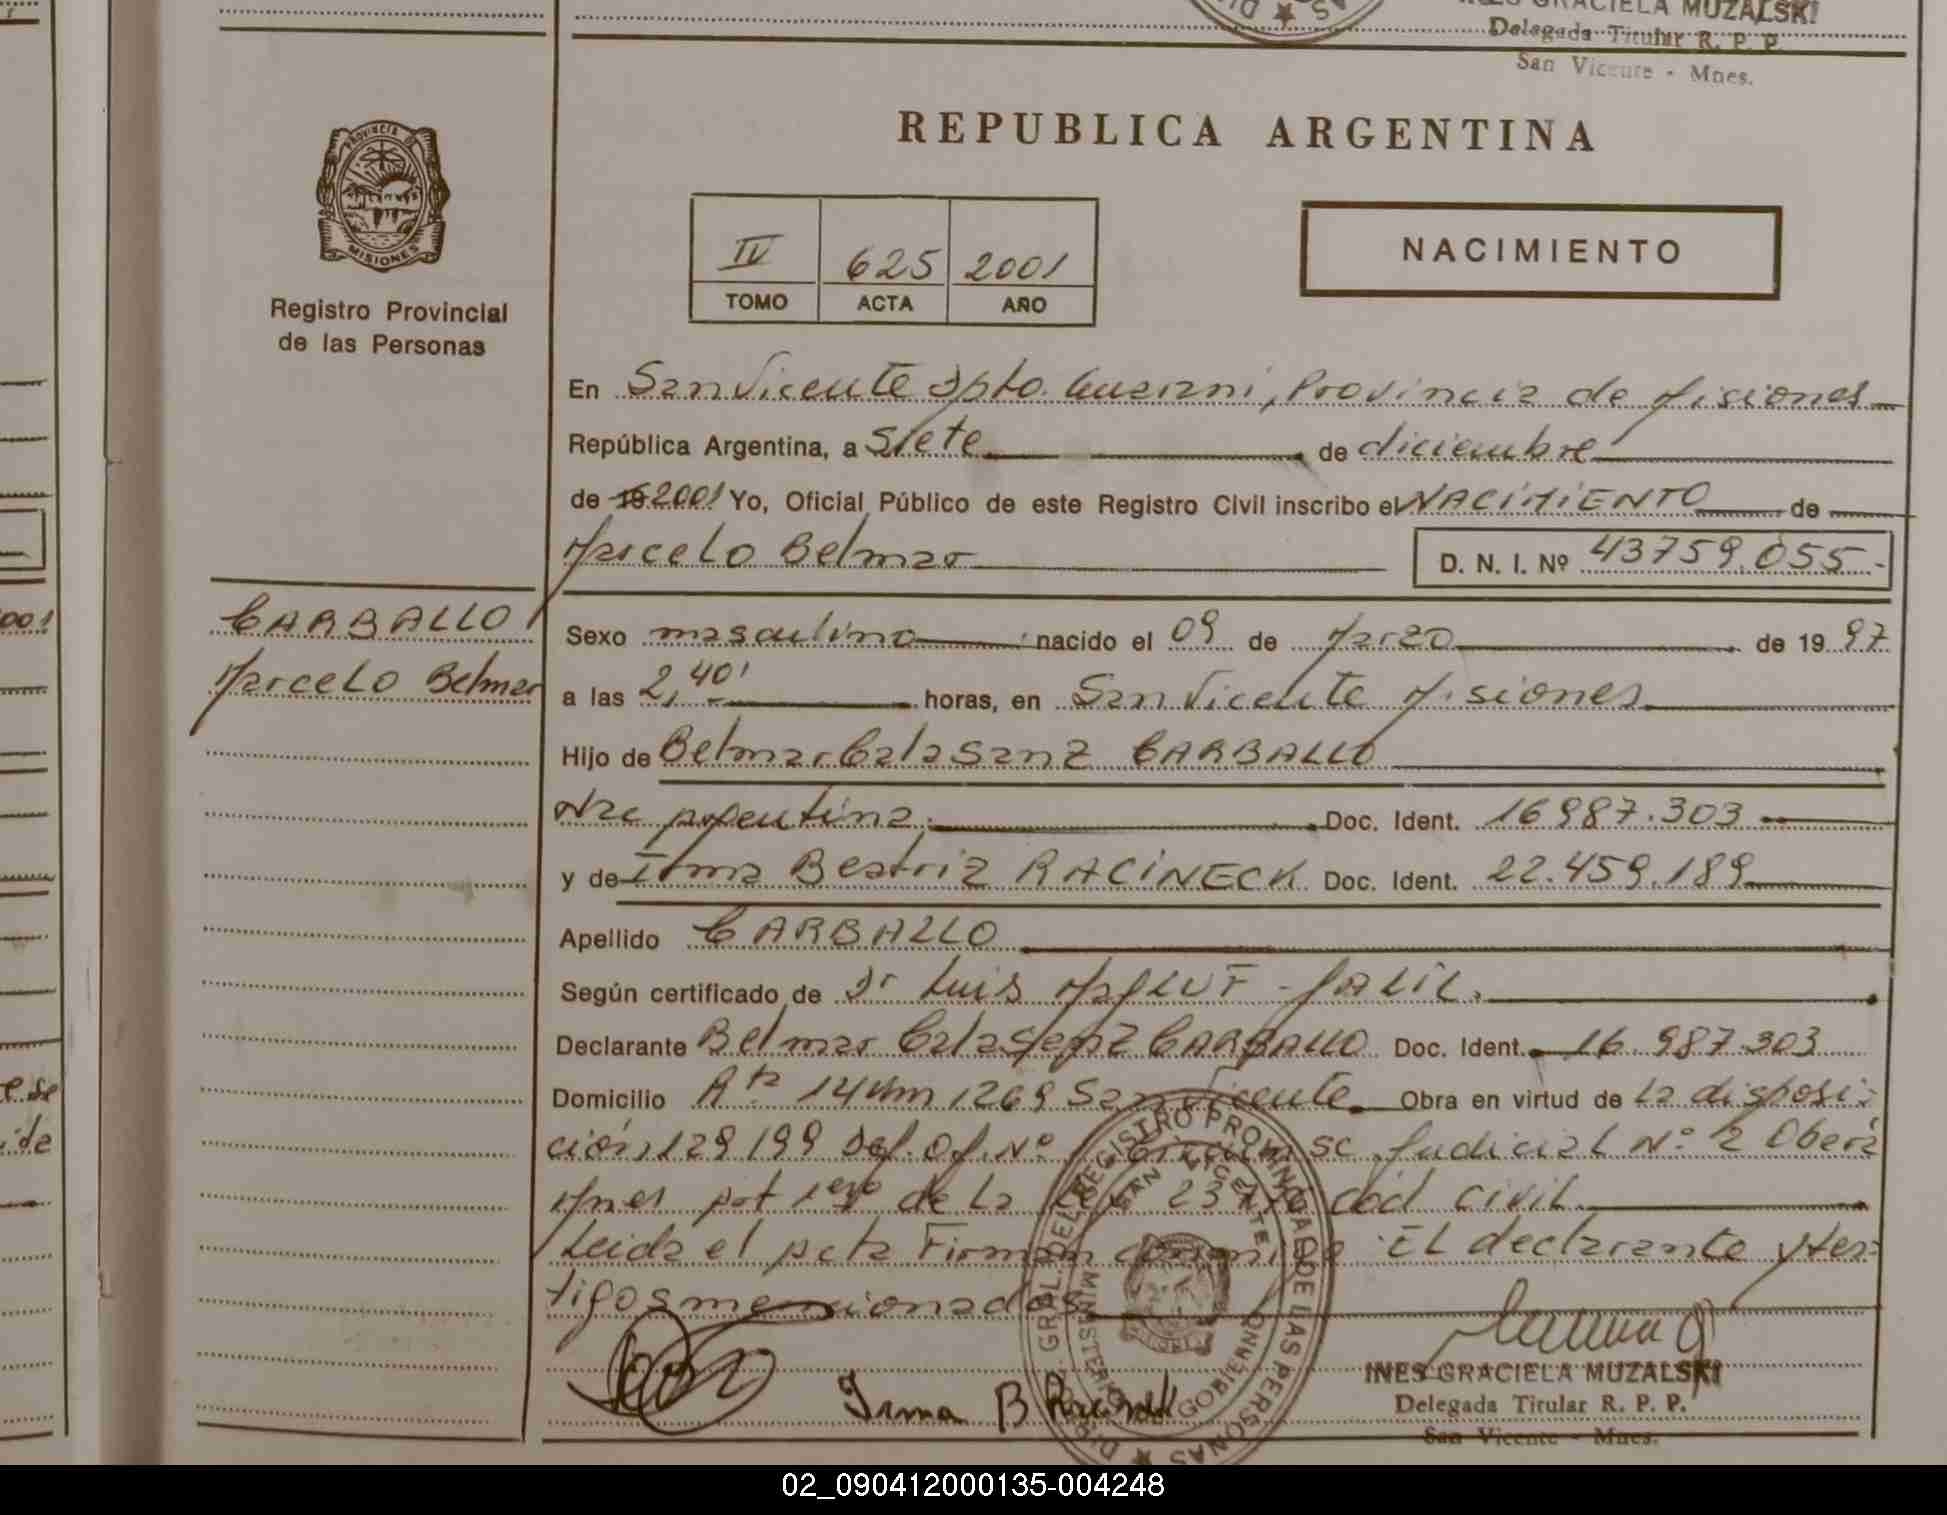 INES GRACIELA MUZALSKI
Delegada Titular R. P. P.
San Vicente - Mnes.
PROVINCIA DE
MISIONES
Registro Provincial
de las Personas
REPUBLICA ARGENTINA
IV 625 2001
TOMO ACTA AÑO
NACIMIENTO
En San Vicente Dpto. Guarani, Provincia de Misiones
República Argentina, a Siete de diciembre
de 19 2001 Yo, Oficial Público de este Registro Civil inscribo el NACIMIENTO de
Marcelo Belmar
D. N. I. Nº 43759.055.-
CARBALLO
Marcelo Belmar
Sexo masculino nacido el 09 de Marzo de 19 97
a las 2,40' horas, en San Vicente Misiones
Hijo de Belmar Calasanz CARBALLO
Nac argentina. Doc. Ident. 16987.303
y de Irma Beatriz RACINECK Doc. Ident. 22.459.189
Apellido CARBALLO
Según certificado de Dr Luis MAJLUF - JALIL.
Declarante Belmar Calasanz CARBALLO Doc. Ident. 16.987.303
Domicilio Rta 14 km 1269 San Vicente. Obra en virtud de la disposi-
ción 129/99 Def. Of. Nº Judicial Nº 2 Oberá
Mnes de la cód civil.
Leida el acta Firman El declarante y tes-
tigos mencionados
Irma B
INES GRACIELA MUZALSKI
Delegada Titular R. P. P.
San Vicente - Mnes.
DIR. GRAL. DEL REGISTRO PROVINCIAL DE LAS PERSONAS
SAN VICENTE
MINISTERIO GOBIERNO
02_090412000135-004248